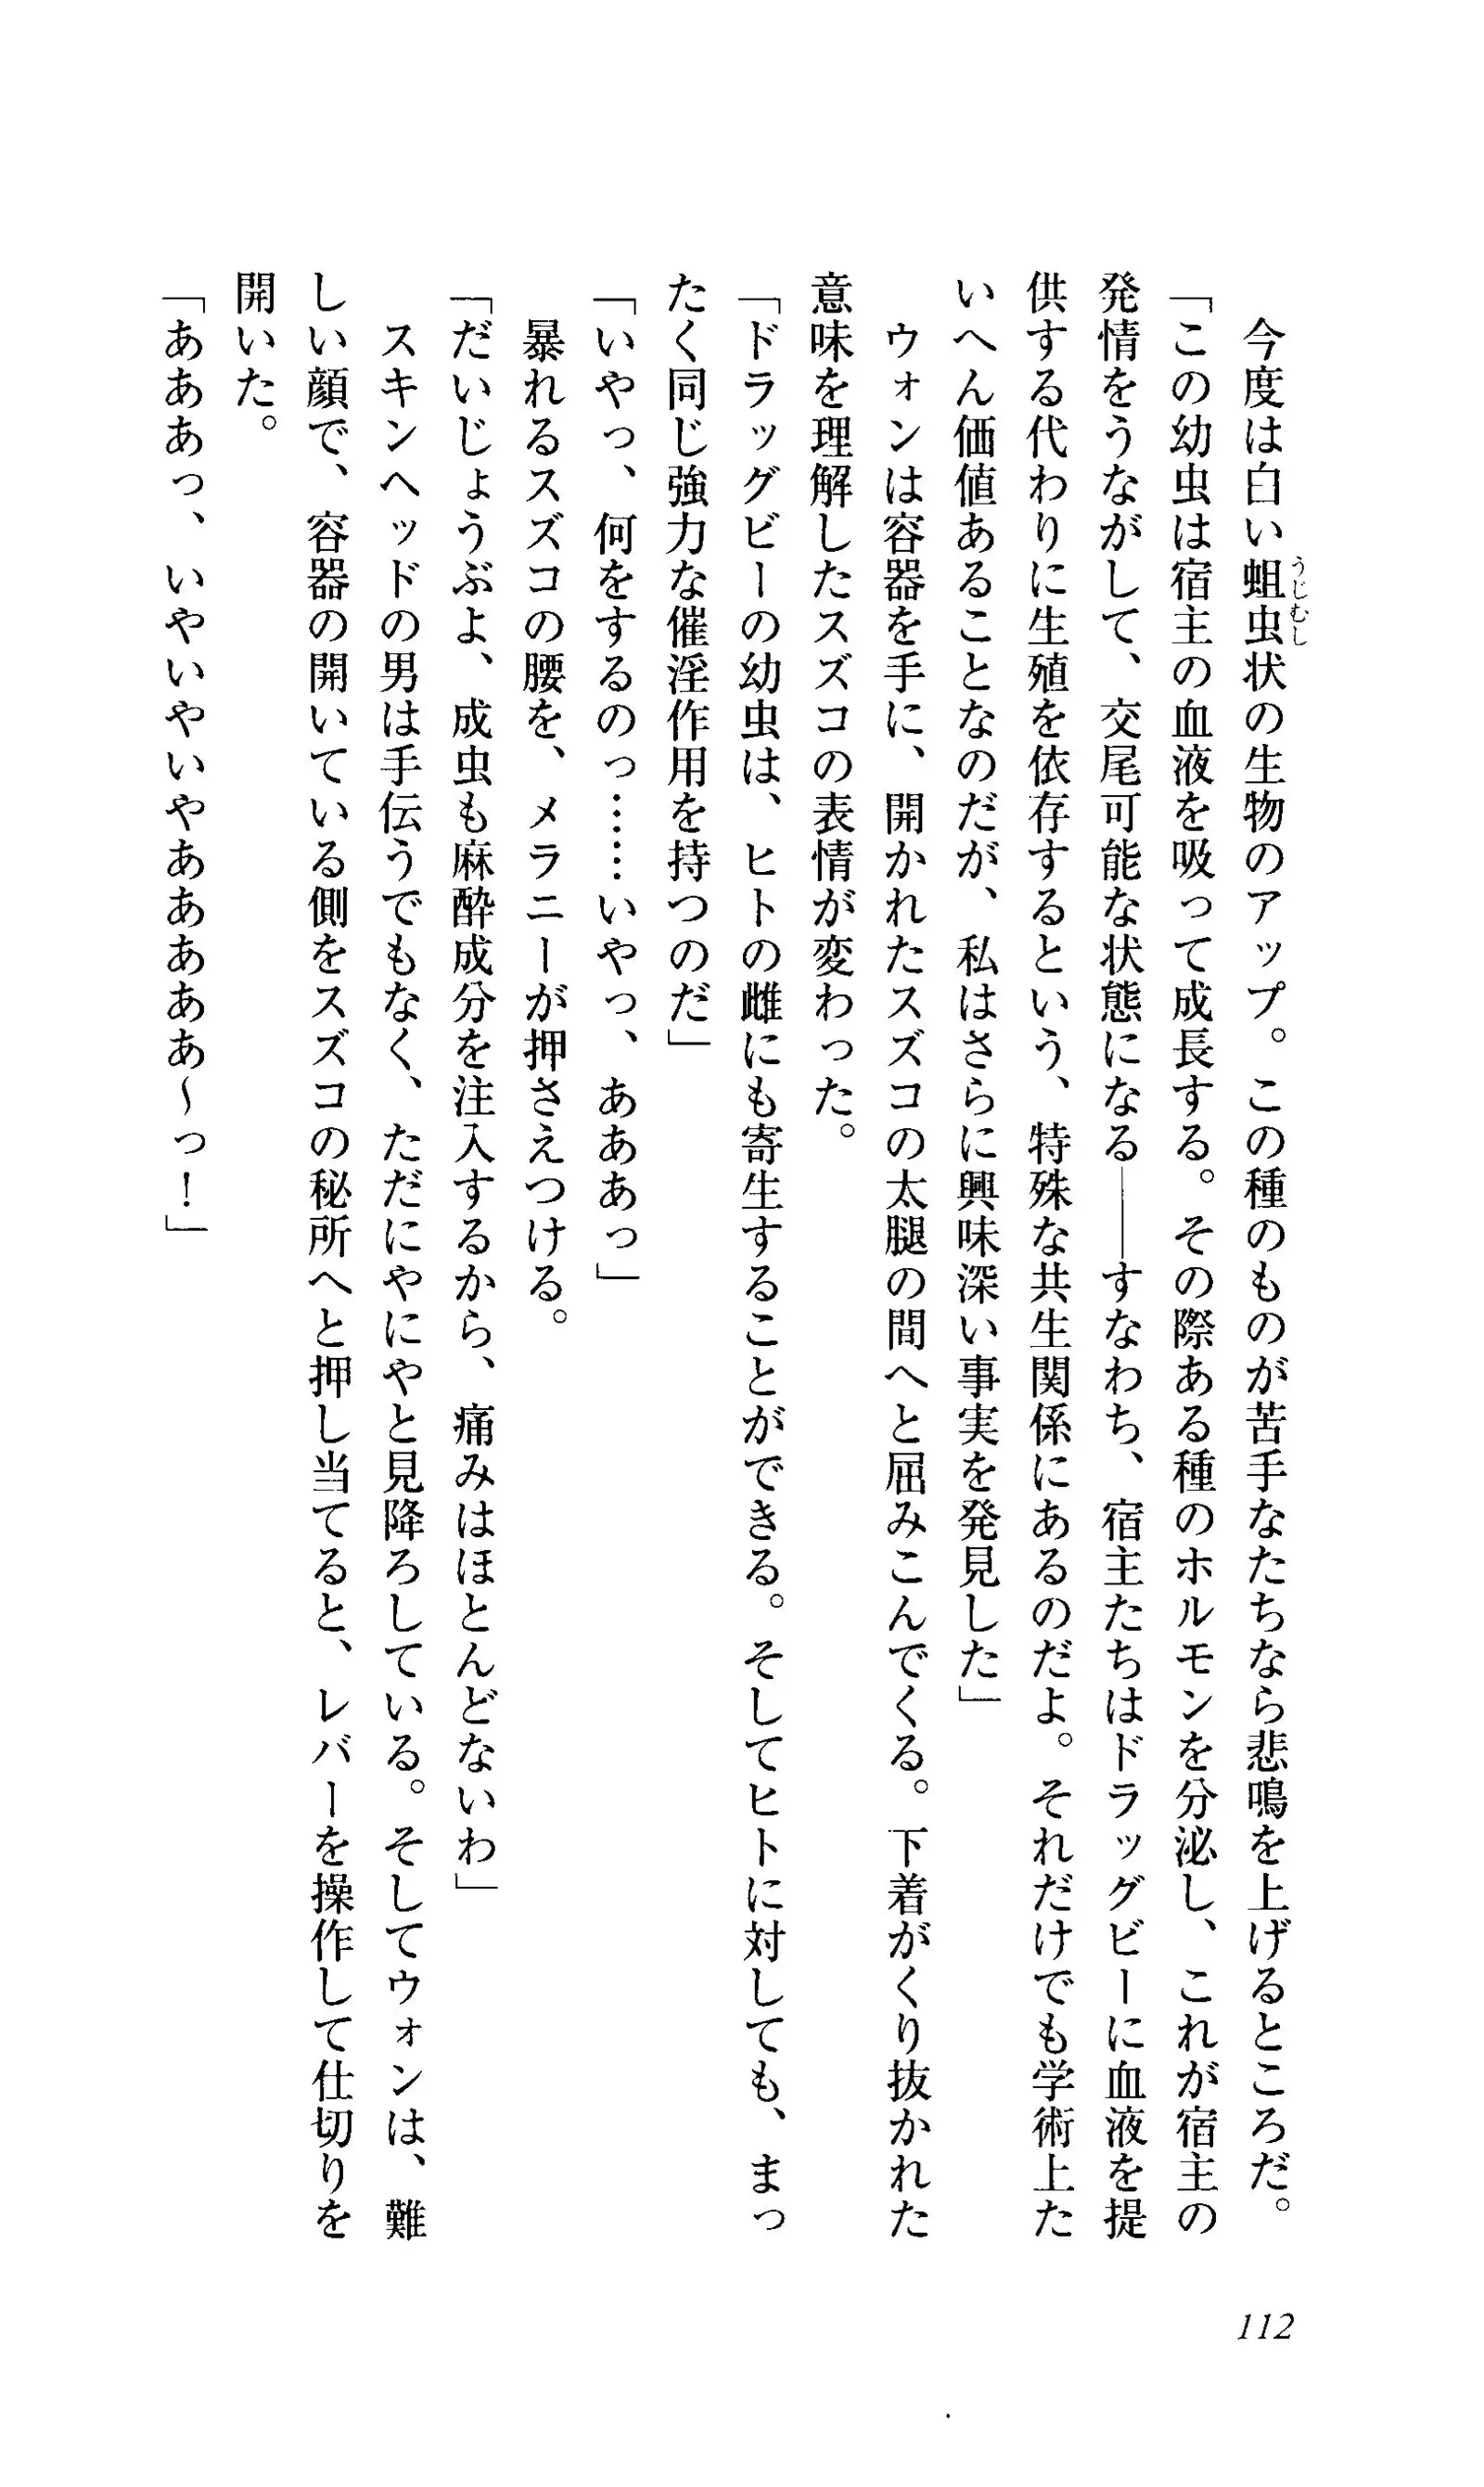 今度は白い蛆虫状の生物のアップ。この種のものが苦手なたちなら悲鳴を上げるところだ。
「この幼虫は宿主の血液を吸って成長する。その際ある種のホルモンを分泌し、これが宿主の
発情をうながして、交尾可能な状態になる――すなわち、宿主たちはドラッグビーに血液を提
供する代わりに生殖を依存するという、特殊な共生関係にあるのだよ。それだけでも学術上た
いへん価値あることなのだが、私はさらに興味深い事実を発見した」
ウォンは容器を手に、開かれたスズコの太腿の間へと屈みこんでくる。下着がくり抜かれた
意味を理解したスズコの表情が変わった。
「ドラッグビーの幼虫は、ヒトの雌にも寄生することができる。そしてヒトに対しても、まっ
たく同じ強力な催淫作用を持つのだ」
「いやっ、何をするのっ……いやっ、あああっ」
暴れるスズコの腰を、メラニーが押さえつける。
「だいじょうぶよ、成虫も麻酔成分を注入するから、痛みはほとんどないわ」
スキンヘッドの男は手伝うでもなく、ただにやにやと見降ろしている。そしてウォンは、難
しい顔で、容器の開いている側をスズコの秘所へと押し当てると、レバーを操作して仕切りを
開いた。
「あああっ、いやいやいやあああああ～っ！」
112